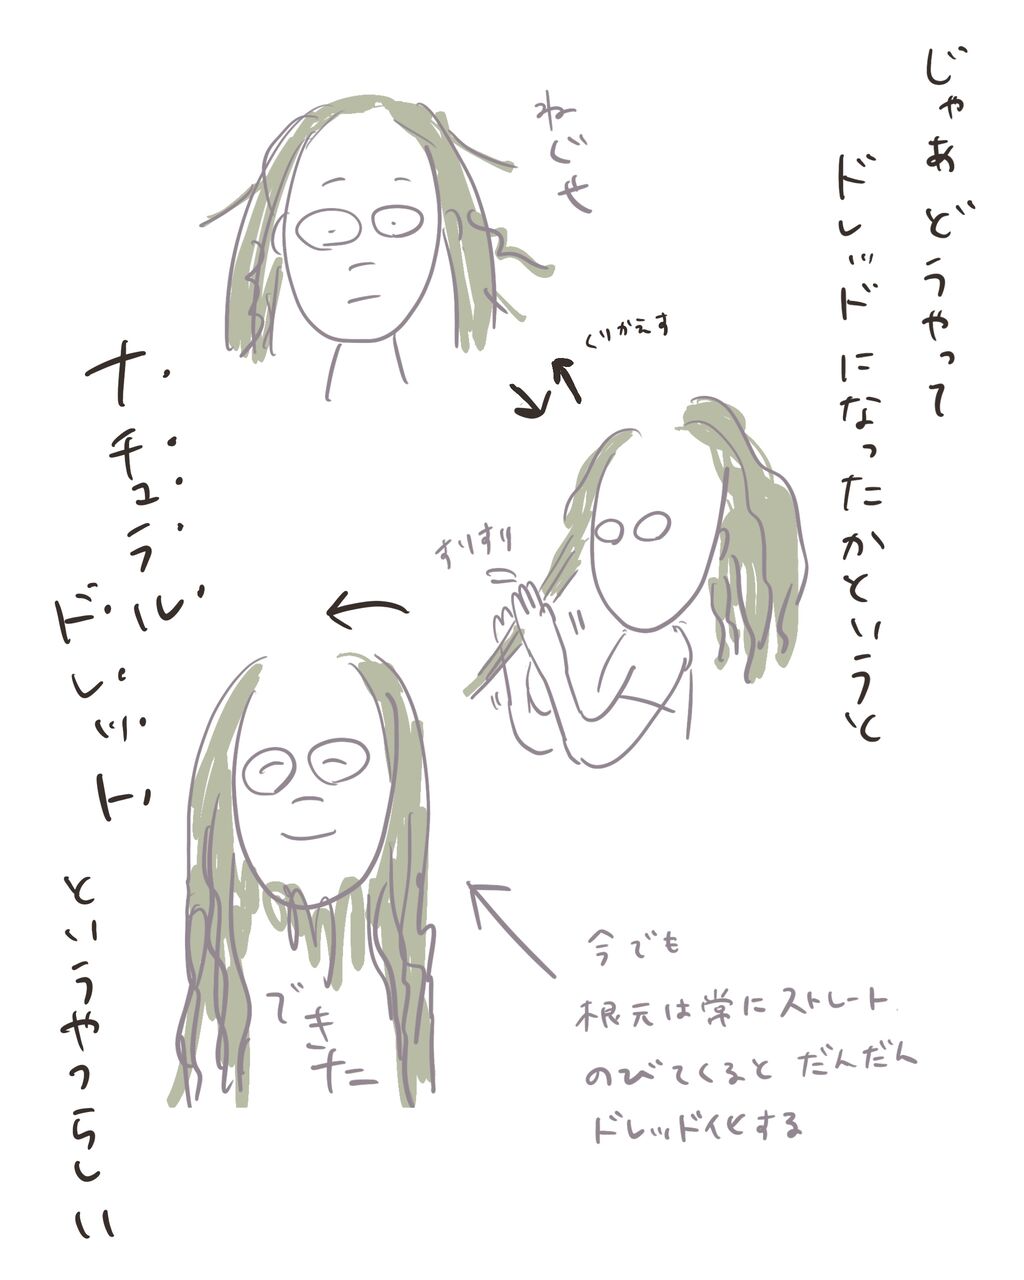 じゃあどうやって
ドレッドになったかというと
ねぐせ
くりかえす
すりすり
できた
今でも
根元は常にストレート
のびてくるとだんだん
ドレッド化する
ナチュラル
ドレッド
というやつらしい